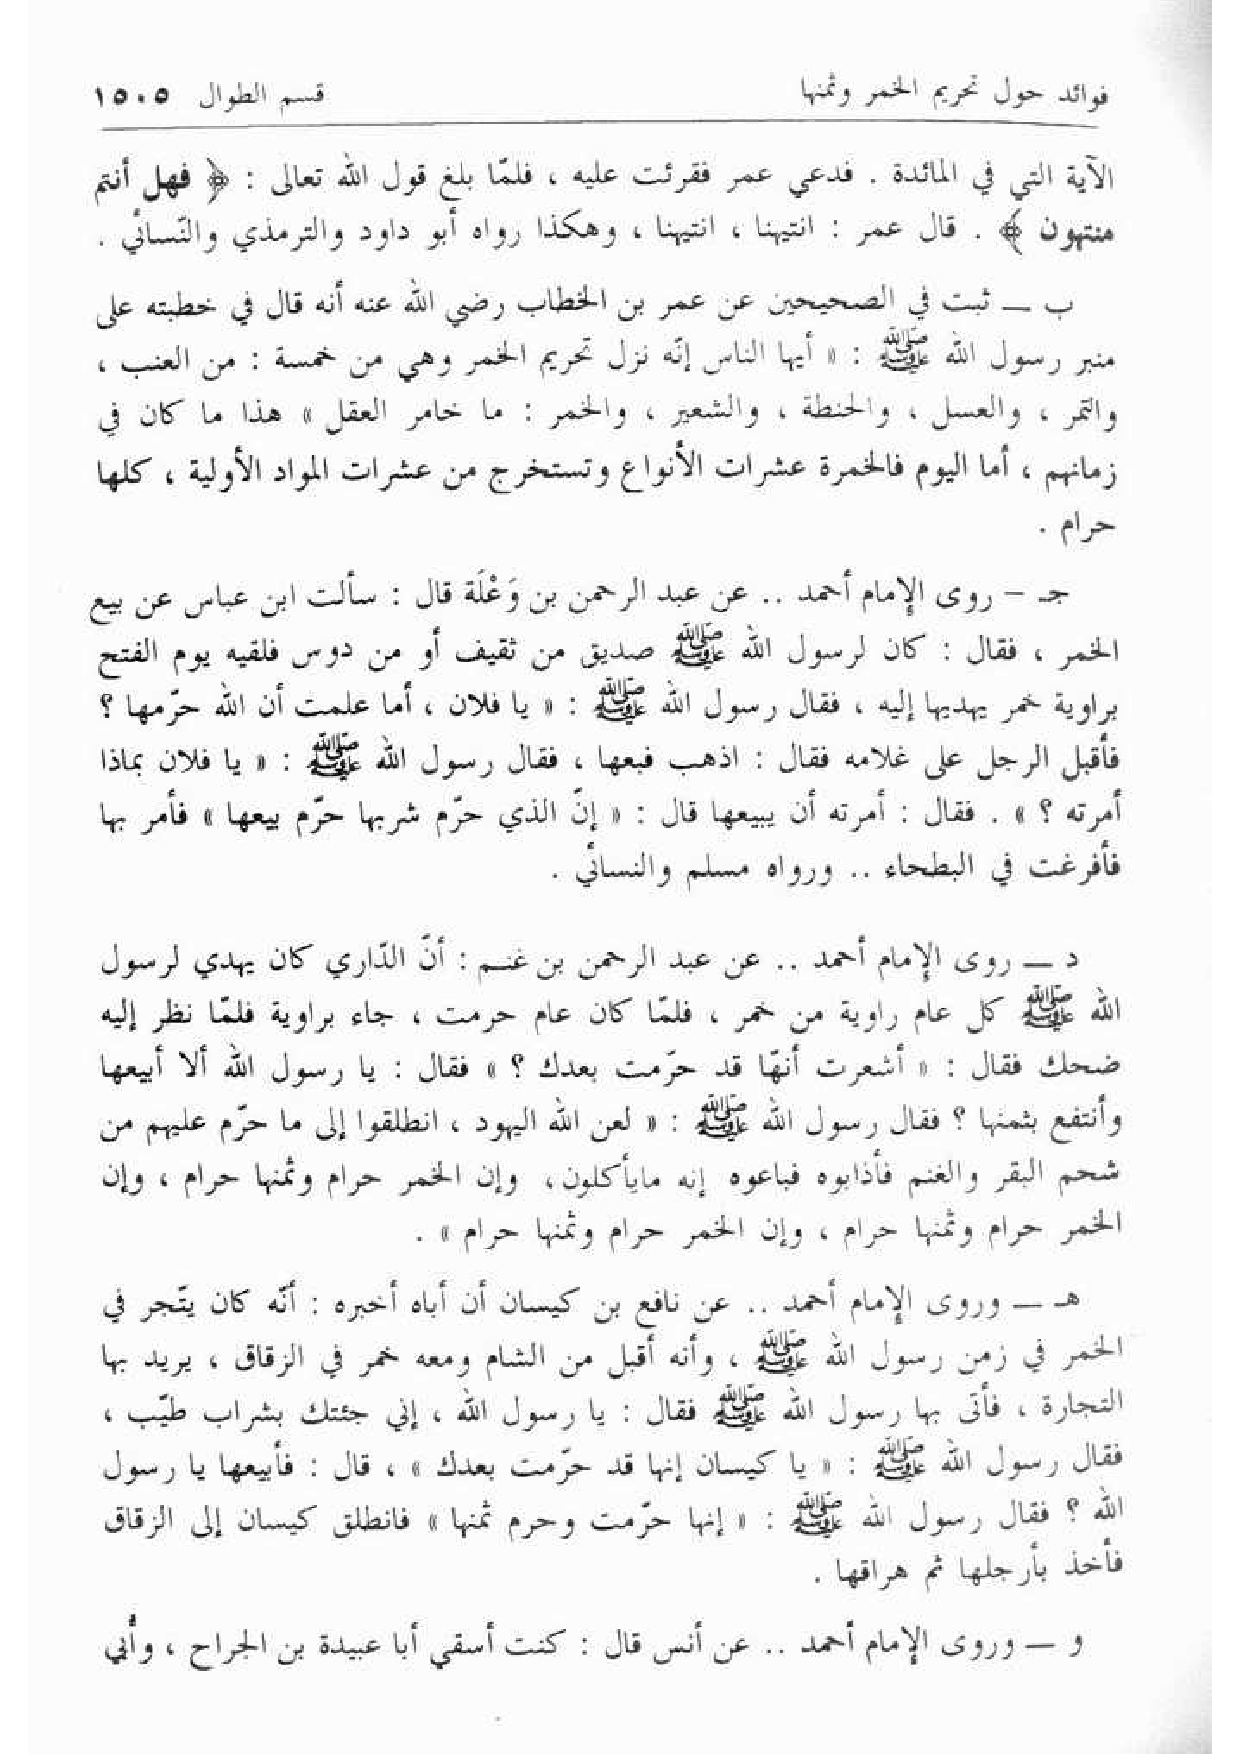 فوائد حول تحريم الخمر وثمنها
قسم الطوال ١٥٠٥
الآية التي في المائدة . فدعي عمر فقرئت عليه ، فلمّا بلغ قول الله تعالى : ﴿ فهل أنتم
منتهون ﴾ . قال عمر : انتهينا ، انتهينا ، وهكذا رواه أبو داود والترمذي والنّسائي .
ب ــ ثبت في الصحيحين عن عمر بن الخطاب رضي الله عنه أنه قال في خطبته على
منبر رسول الله ﷺ : « أيها الناس إنّه نزل تحريم الخمر وهي من خمسة : من العنب ،
والتمر ، والعسل ، والحنطة ، والشعير ، والخمر : ما خامر العقل » هذا ما كان في
زمانهم ، أما اليوم فالخمرة عشرات الأنواع وتستخرج من عشرات المواد الأولية ، كلها
حرام .
جـ – روى الإمام أحمد .. عن عبد الرحمن بن وَعْلَة قال : سألت ابن عباس عن بيع
الخمر ، فقال : كان لرسول الله ﷺ صديق من ثقيف أو من دوس فلقيه يوم الفتح
براوية خمر يهديها إليه ، فقال رسول الله ﷺ : « يا فلان ، أما علمت أن الله حرّمها ؟
فأقبل الرجل على غلامه فقال : اذهب فبعها ، فقال رسول الله ﷺ : « يا فلان بماذا
أمرته ؟ » . فقال : أمرته أن يبيعها قال : « إنّ الذي حرّم شربها حرّم بيعها » فأمر بها
فأفرغت في البطحاء .. ورواه مسلم والنسائي .
د ــ روى الإمام أحمد .. عن عبد الرحمن بن غنم : أنّ الدّاري كان يهدي لرسول
الله ﷺ كل عام راوية من خمر ، فلمّا كان عام حرمت ، جاء براوية فلمّا نظر إليه
ضحك فقال : « أشعرت أنهّا قد حرّمت بعدك ؟ » فقال : يا رسول الله ألا أبيعها
وأنتفع بثمنها ؟ فقال رسول الله ﷺ : « لعن الله اليهود ، انطلقوا إلى ما حرّم عليهم من
شحم البقر والغنم فأذابوه فباعوه إنه مايأكلون، وإن الخمر حرام وثمنها حرام ، وإن
الخمر حرام وثمنها حرام ، وإن الخمر حرام وثمنها حرام » .
هـ ــ وروى الإمام أحمد .. عن نافع بن كيسان أن أباه أخبره : أنّه كان يتّجر في
الخمر في زمن رسول الله ﷺ ، وأنه أقبل من الشام ومعه خمر في الزقاق ، يريد بها
التجارة ، فأتى بها رسول الله ﷺ فقال : يا رسول الله ، إني جئتك بشراب طيّب ،
فقال رسول الله ﷺ : « يا كيسان إنها قد حرّمت بعدك » ، قال : فأبيعها يا رسول
الله ؟ فقال رسول الله ﷺ : « إنها حرّمت وحرم ثمنها » فانطلق كيسان إلى الزقاق
فأخذ بأرجلها ثم هراقها .
و ــ وروى الإمام أحمد .. عن أنس قال : كنت أسقي أبا عبيدة بن الجراح ، وأُبي